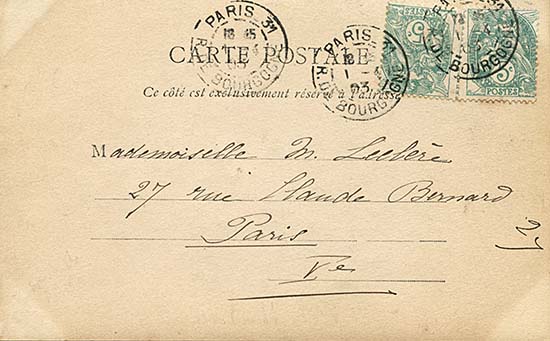 PARIS 31
18 45
R. DE BOURGOGNE
CARTE POSTALE
PARIS
R. DE BOURGOGNE
03
5c
5c
POSTES
DE BOURGOGNE
Ce côté est exclusivement réservé à l'adresse
Mademoiselle M. Leclère
27 rue Claude Bernard
Paris
Ve